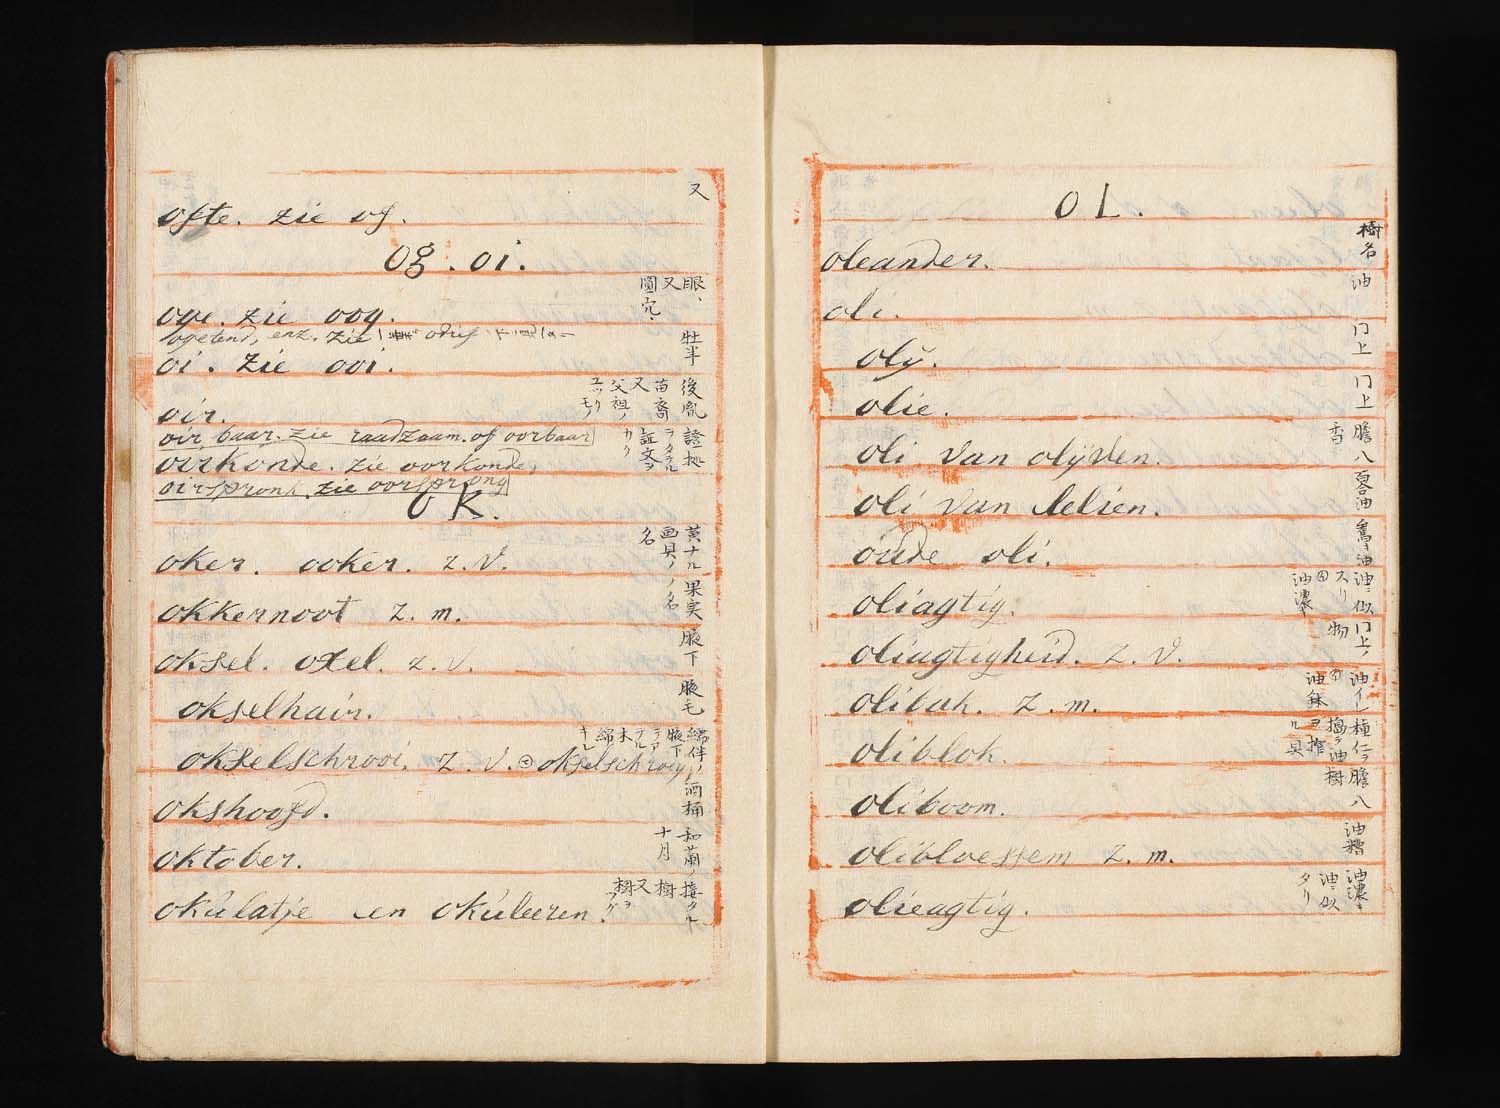 ofte. zie of.
又
Og. Oi.
oge. zie oog.
眼、又圓穴、
ogetend, enz. zie
oi. zie ooi.
牡羊
oir.
後胤 苗裔 又 父祖ノ ユツリモノ
oirbaar. zie raadzaam. of oorbaar
oirkonde. zie oorkonde,
證拠 ヲ 証文ヲ カク
oirspronk. zie oorsprong
OK.
oker. ooker. z. v.
黄ナル 画具ノ 名
okkernoot z. m.
果実ノ名
oksel. oxel. z. v.
腋下
okselhair.
腋毛
okselschrooi. z. v. okselschroey
腋下
okshoofd.
酒桶
oktober.
和蘭ノ 十月
okulatje en okuleeren.
接タル 樹 又 樹ヲ ツグ
OL.
oleander.
樹名
oli.
油
oly.
门上
olie.
门上
oli van olyven.
膽八香
oli van lelien.
百合油
oude oli.
舊キ油
oliagtig.
油ニ似 スリ 油濃キ
oliagtigheid. z. v.
门上ノ物
olibak. z. m.
油イレ 油鉢
oliblok.
種仁ヲ 搗ヲ油ヲ搾ル具
oliboom.
膽八樹
olibloessem z. m.
油糟
olieagtig.
油濃キ 油ニ似タリ